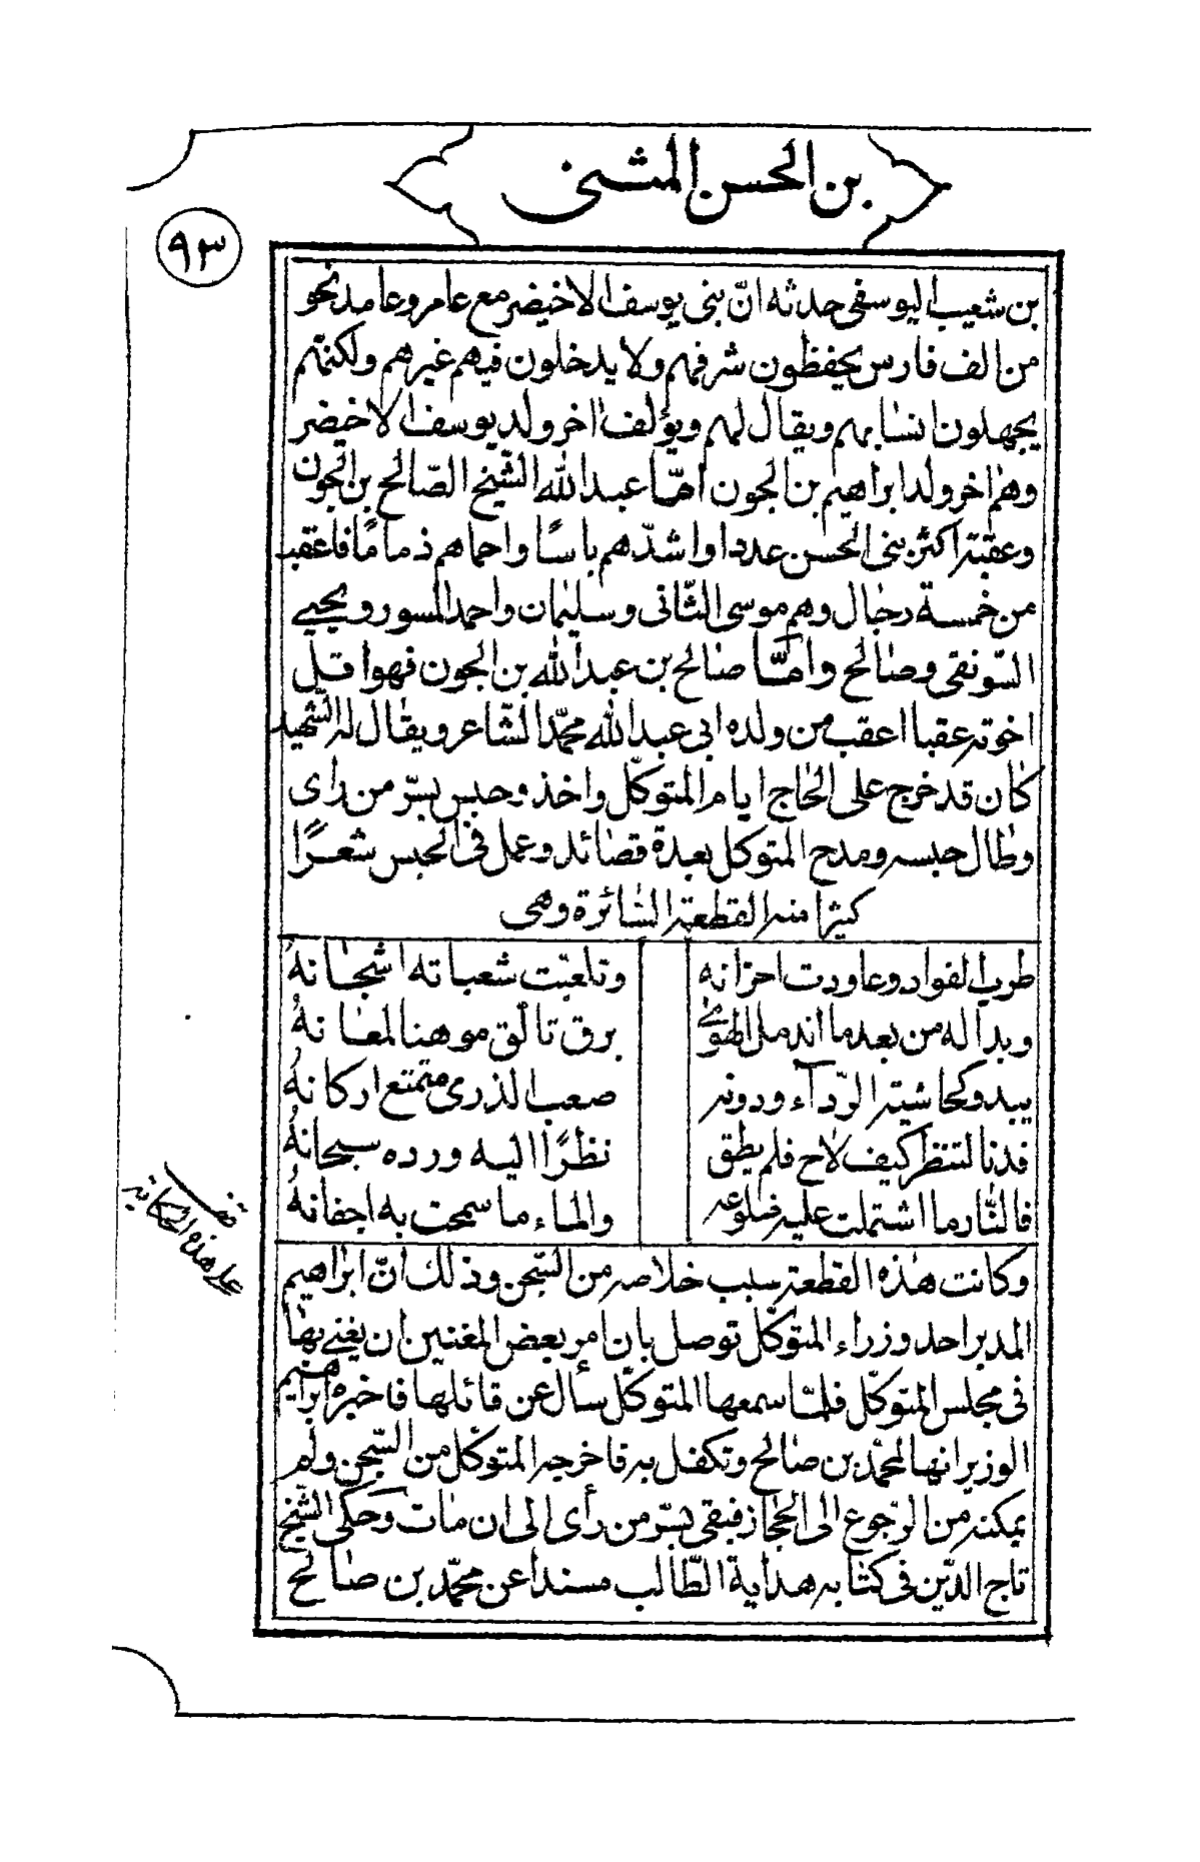 بن الحسن المثنى
٩٣
بن شعيب اليوسفى حدثه انّ بنى يوسف الاخيضر مع عامر وعامد نحو
من الف فارس يحفظون شرفهم ولا يدخلون فيهم غيرهم ولكنهم
يجهلون انسابهم ويقال لهم ويؤلف اخر ولد يوسف الاخيضر
وهم اخر ولد ابراهيم بن الجون امّا عبد الله الشيخ الصّالح بن الجون
وعقبه اكثر بنى الحسن عددا واشدّهم باسًا واحماهم ذمامًا فاعقب
من خمسة رجال وهم موسى الثّانى وسليمان واحمد المسور ويحيى
السّونقى وصالح وامّا صالح بن عبد الله بن الجون فهوا قل
اخوته عقبا اعقب من ولده ابى عبد الله محمّد الشّاعر ويقال له الشّهيد
كان قد خرج على الحاج ايام المتوكّل واخذ وحبس بسرّ من راى
وطال حبسه ومدح المتوكل بعدة قصائد وعمل فى الحبس شعرًا
كثيرا منه القطعة السّائرة وهى
طرب الفواد وعاودت احزانه وتلعّبت شعباته اشجانهُ
وبدا له من بعد ما اندمل الهوى برق تالّق موهنا لمعانهُ
يبدو كحاشية الرّدآء ودونه صعب الذرى متمتع اركانهُ
فدنا لتنظر كيف لاح فلم يطق نظرًا اليه ورده سبحانهُ
فالنّار ما اشتملت عليه ضلوعه والماء ما سمحت به اجفانهُ
على هذه الحكاية
وكانت هذه القطعة سبب خلاصه من السّجن وذلك انّ ابراهيم
المدبر احد وزراء المتوكّل توصل بان امر بعض المغنين ان يغنى بها
فى مجلس المتوكّل فلمّا سمعها المتوكّل سأل عن قائلها فاخبره ابراهيم
الوزير انها لمحمّد بن صالح وتكفل به فاخرجه المتوكّل من السّجن ولم
يمكنه من الرّجوع الى الحجاز فبقى بسرّ من رأى الى ان مات وحكى الشّيخ
تاج الدّين فى كتابه هداية الطّالب مسندا عن محمّد بن صالح